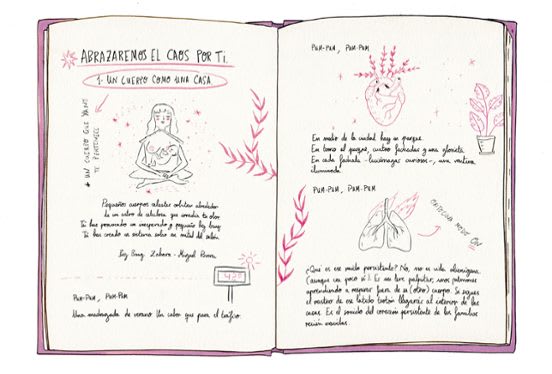 ABRAZAREMOS EL CAOS POR TI.
1. UN CUERPO COMO UNA CASA
* UN CUERPO QUE YA NO
TE PERTENECE
Pequeños cuerpos celestes orbitan alrededor
de un cubo de
Te has provocado un inesperado y pequeño big bang
Te has creado un sistema solar en mitad del salón.
Big Bang. Zahara - Miguel Rivera
42º
PUM-PUM, PUM-PUM
Una madrugada de verano. Un calor que para el tráfico.
PUM-PUM, PUM-PUM
En medio de la ciudad hay un parque.
En torno al parque, cuatro fachadas y una glorieta.
En cada fachada -luciérnagas curiosas-, una ventana
iluminada.
PUM-PUM, PUM-PUM
MODO ON
¿Qué es ese ruido persistente? No, no es vida alienígena
(aunque un poco sí). Es un leve palpitar, unos pulmones
aprendiendo a respirar fuera de su (otro) cuerpo. Si sigues
el rastro de ese latido tontón llegarás al interior de las
casas. Es el sonido del corazón persistente de las familias
recién nacidas.